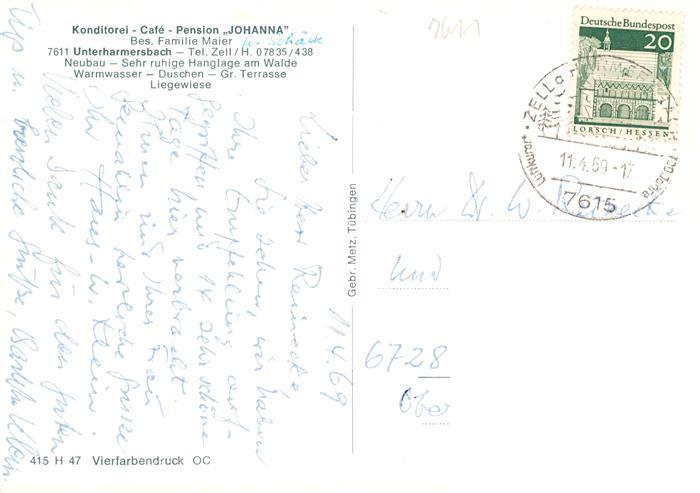 Konditorei - Café - Pension „JOHANNA"
Bes. Familie Maier
u. Schäck
7611 Unterharmersbach – Tel. Zell / H. 07835/438
Neubau – Sehr ruhige Hanglage am Walde
Warmwasser – Duschen – Gr. Terrasse
Liegewiese
7611
Deutsche Bundespost
20
LORSCH/HESSEN
ZELL
Luftkurort
11.4.69-17
7615
11.4.69
Lieber Herr Reinecke,
Sie sehen, wir haben
Ihre Empfehlung auf-
und 14 sehr schöne
Tage hier verbracht.
Ihnen und Ihrer Frau
herzliche Grüße
Ihr Haus-W. Klein.
Vielen Dank für den guten
Tip u. herzliche Grüße,
Herrn Dr. W. Reinecke
und
6728
Ober
Gebr. Metz, Tübingen
415 H 47 Vierfarbendruck OC